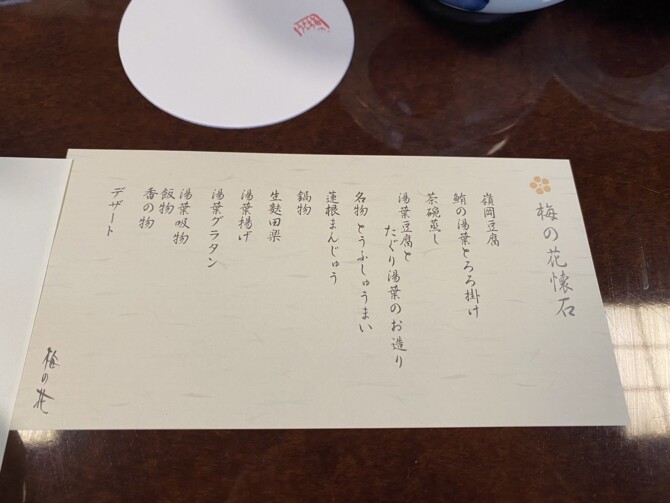 梅の花懐石
嶺岡豆腐
鮪の湯葉とろろ掛け
茶碗蒸し
湯葉豆腐と
たぐり湯葉のお造り
名物 とうふしゅうまい
蓮根まんじゅう
鍋物
生麩田楽
湯葉揚げ
湯葉グラタン
湯葉吸物
飯物
香の物
デザート
梅の花